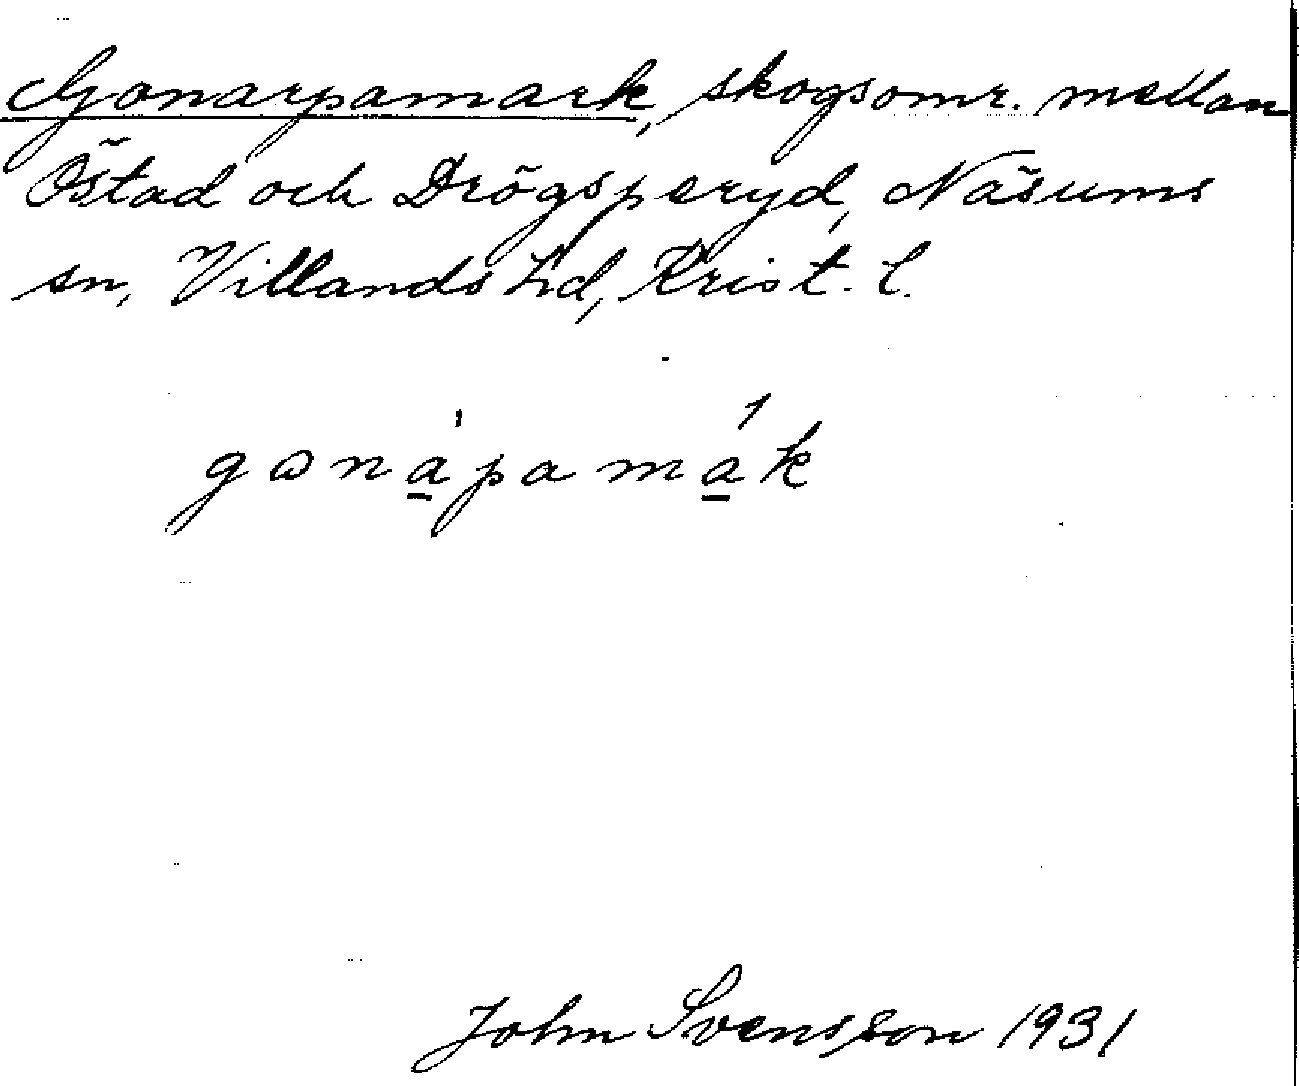 Gonarpamark, skogsomr. mellan
Östad och Drögsperyd, Näsums
sn, Villands hd, Krist. l.
gɷnápamák
John Svensson 1931